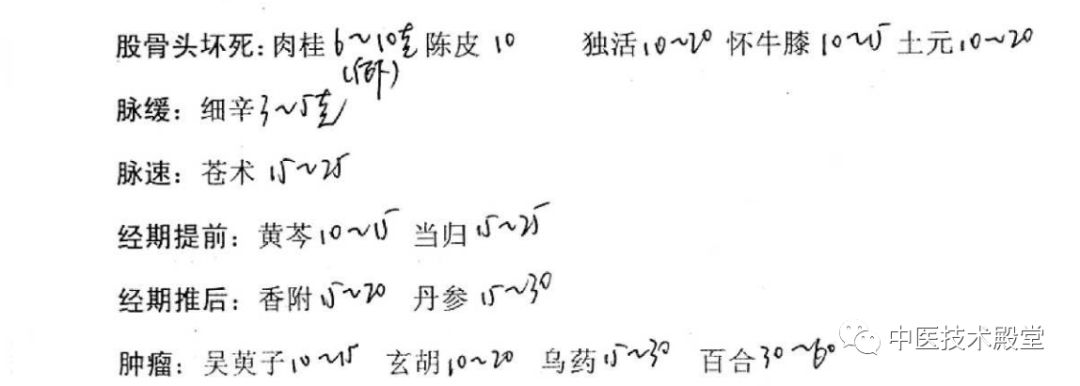 股骨头坏死：肉桂 6~10克 陈皮 10 独活 10~20 怀牛膝 10~15 土元 10~20
脉缓：细辛 3~5克
脉速：苍术 15~25
经期提前：黄芩 10~15 当归 15~25
经期推后：香附 15~20 丹参 15~30
肿瘤：吴萸子 10~15 玄胡 10~20 乌药 15~30 百合 30~60
中医技术殿堂